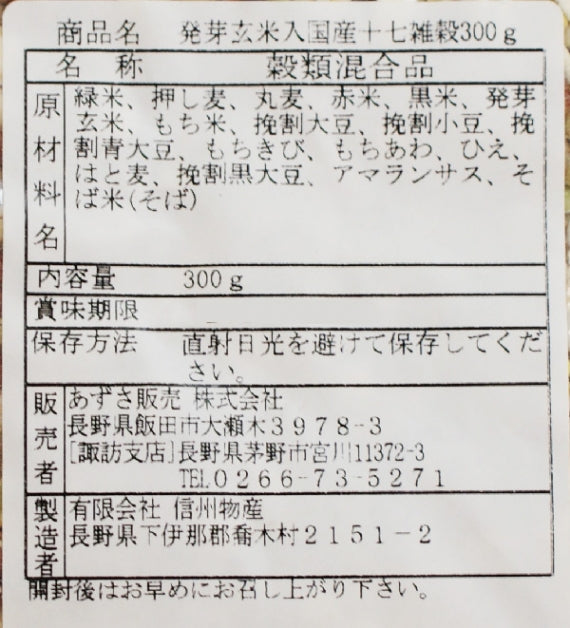 商品名 発芽玄米入国産十七雑穀300g
名称 穀類混合品
原材料名 緑米、押し麦、丸麦、赤米、黒米、発芽
玄米、もち米、挽割大豆、挽割小豆、挽
割青大豆、もちきび、もちあわ、ひえ、
はと麦、挽割黒大豆、アマランサス、そ
ば米(そば)
内容量 300g
賞味期限
保存方法 直射日光を避けて保存してくだ
さい。
販売者 あずさ販売 株式会社
長野県飯田市大瀬木3978-3
[諏訪支店]長野県茅野市宮川11372-3
TEL0266-73-5271
製造者 有限会社 信州物産
長野県下伊那郡喬木村2151-2
開封後はお早めにお召し上がり下さい。